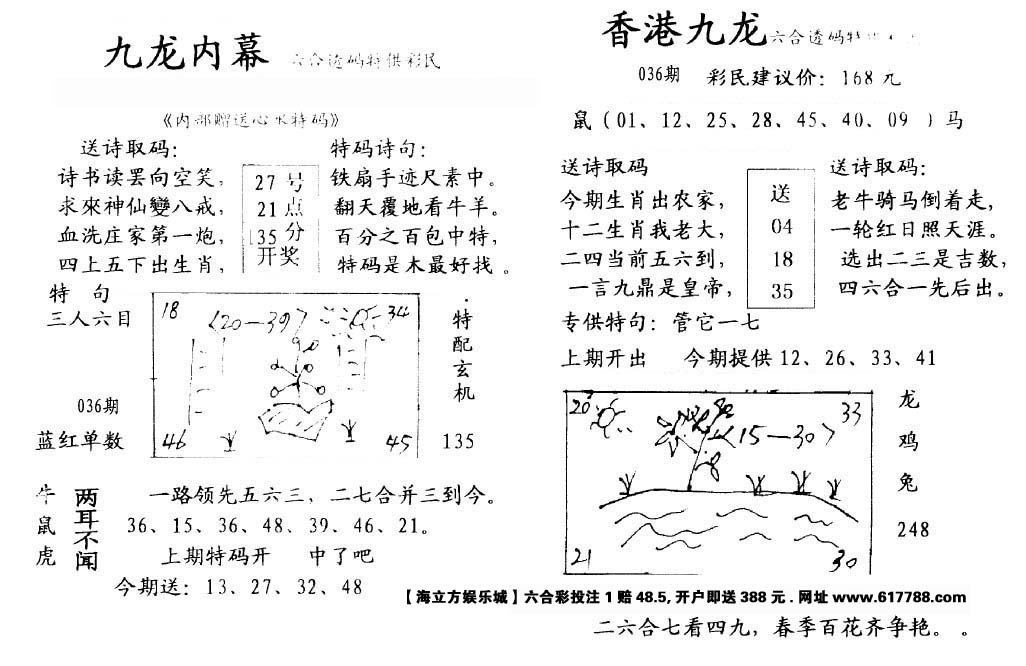 九龙内幕 六合透码特供彩民
《内部赠送心水特码》
送诗取码：
诗书读罢向空笑，
求來神仙變八戒，
血洗庄家第一炮，
四上五下出生肖，
27号
21点
135分
开奖
特码诗句：
铁扇手迹尺素中。
翻天覆地看牛羊。
百分之百包中特，
特码是木最好找。
特句
三人六目
036期
蓝红单数
18 〈20—39〉 34
46 45
特配玄机
135
牛鼠虎
两耳不闻
一路领先五六三，二七合并三到今。
36、15、36、48、39、46、21。
上期特码开 中了吧
今期送：13、27、32、48
香港九龙 六合透码特
036期 彩民建议价：168元
鼠（01、12、25、28、45、40、09 ）马
送诗取码
今期生肖出农家，
十二生肖我老大，
二四当前五六到，
一言九鼎是皇帝，
送
04
18
35
送诗取码：
老牛骑马倒着走，
一轮红日照天涯。
选出二三是吉数，
四六合一先后出。
专供特句：管它一七
上期开出 今期提供12、26、33、41
20 33
〈15—30〉
21 30
龙
鸡
兔
248
【海立方娱乐城】六合彩投注1赔48.5,开户即送388元.网址www.617788.com
二六合七看四九，春季百花齐争艳。。